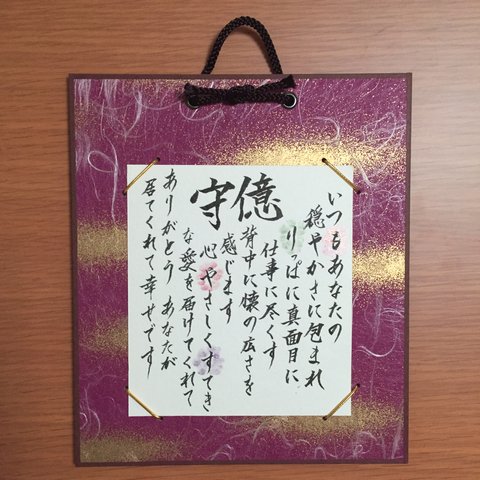 守億
いつもあなたの
穏やかさに包まれ
りっぱに真面目に
仕事に尽くす
背中に懐の広さを
感じます
心やさしくすてき
な愛を届けてくれて
ありがとう あなたが
居てくれて幸せです